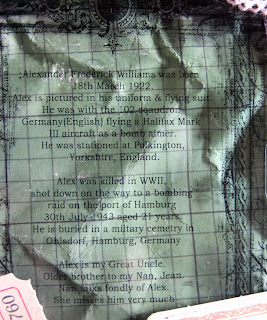 Alexander Frederick Williams was born
18th March 1922.
Alex is pictured in his uniform & flying suit
He was with the 102 sqaudron,
Germany(English) flying a Halifax Mark
III aircraft as a bomb aimer.
He was stationed at Polkington,
Yorkshire, England.
Alex was killed in WWII,
shot down on the way to a bombing
raid on the port of Hamburg
30th July 1943 aged 21 years.
He is buried in a military cemetry in
Ohlsdorf, Hamburg, Germany
Alex is my Great Uncle.
Older brother to my Nan, Jean.
Nan talks fondly of Alex.
She misses him very much
760